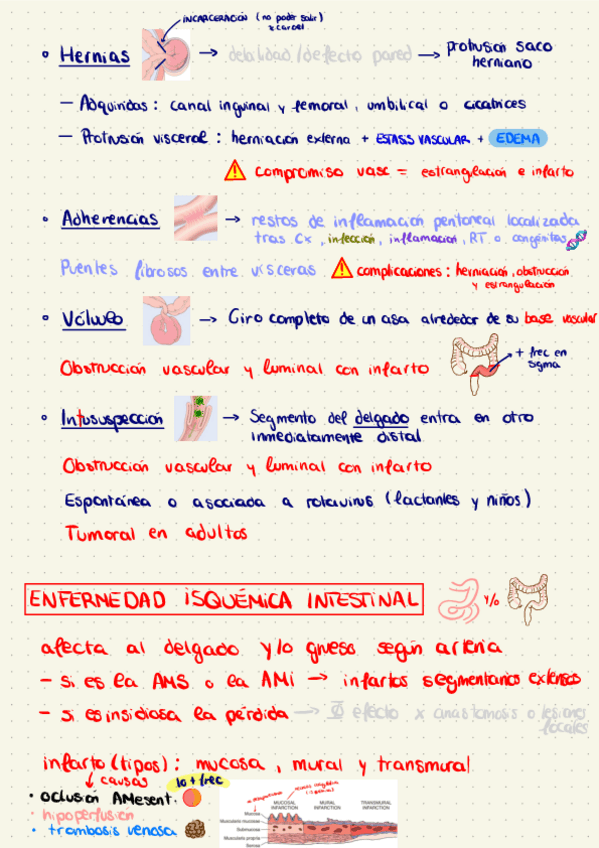 INCARCERACIÓN (no poder salir)
x carcel
• Hernias → debilidad/defecto pared → protrusión saco
herniano
- Adquiridas: canal inguinal y femoral, umbilical o cicatrices
- Protrusión visceral: herniación externa + ESTASIS VASCULAR + EDEMA
compromiso vasc = estrangulación e infarto
• Adherencias → restos de inflamación peritoneal localizada
tras Cx, infección, inflamación, RT o congénitas
Puentes fibrosos entre vísceras complicaciones: herniación, obstrucción
y estrangulación
• Vólvulo → Giro completo de un asa alrededor de su base vascular
Obstrucción vascular y luminal con infarto
+ frec en
sigma
• Intususpección → Segmento del delgado entra en otro
inmediatamente distal
Obstrucción vascular y luminal con infarto
Espontánea o asociada a rotavirus (lactantes y niños)
Tumoral en adultos
ENFERMEDAD ISQUÉMICA INTESTINAL y/o
afecta al delgado y/o grueso según arteria
- si es la AMS o la AMI → infartos segmentarios extensos
- si es insidiosa la pérdida → efecto x anastomosis o lesiones
focales
infarto (tipos): mucosa, mural y transmural
causas lo + frec
• oclusión AMesent.
• hipoperfusión
• trombosis venosa
MUCOSAL INFARCTION MURAL INFARCTION TRANSMURAL INFARCTION
Mucosa
Muscularis mucosae
Submucosa
Muscularis propria
Serosa